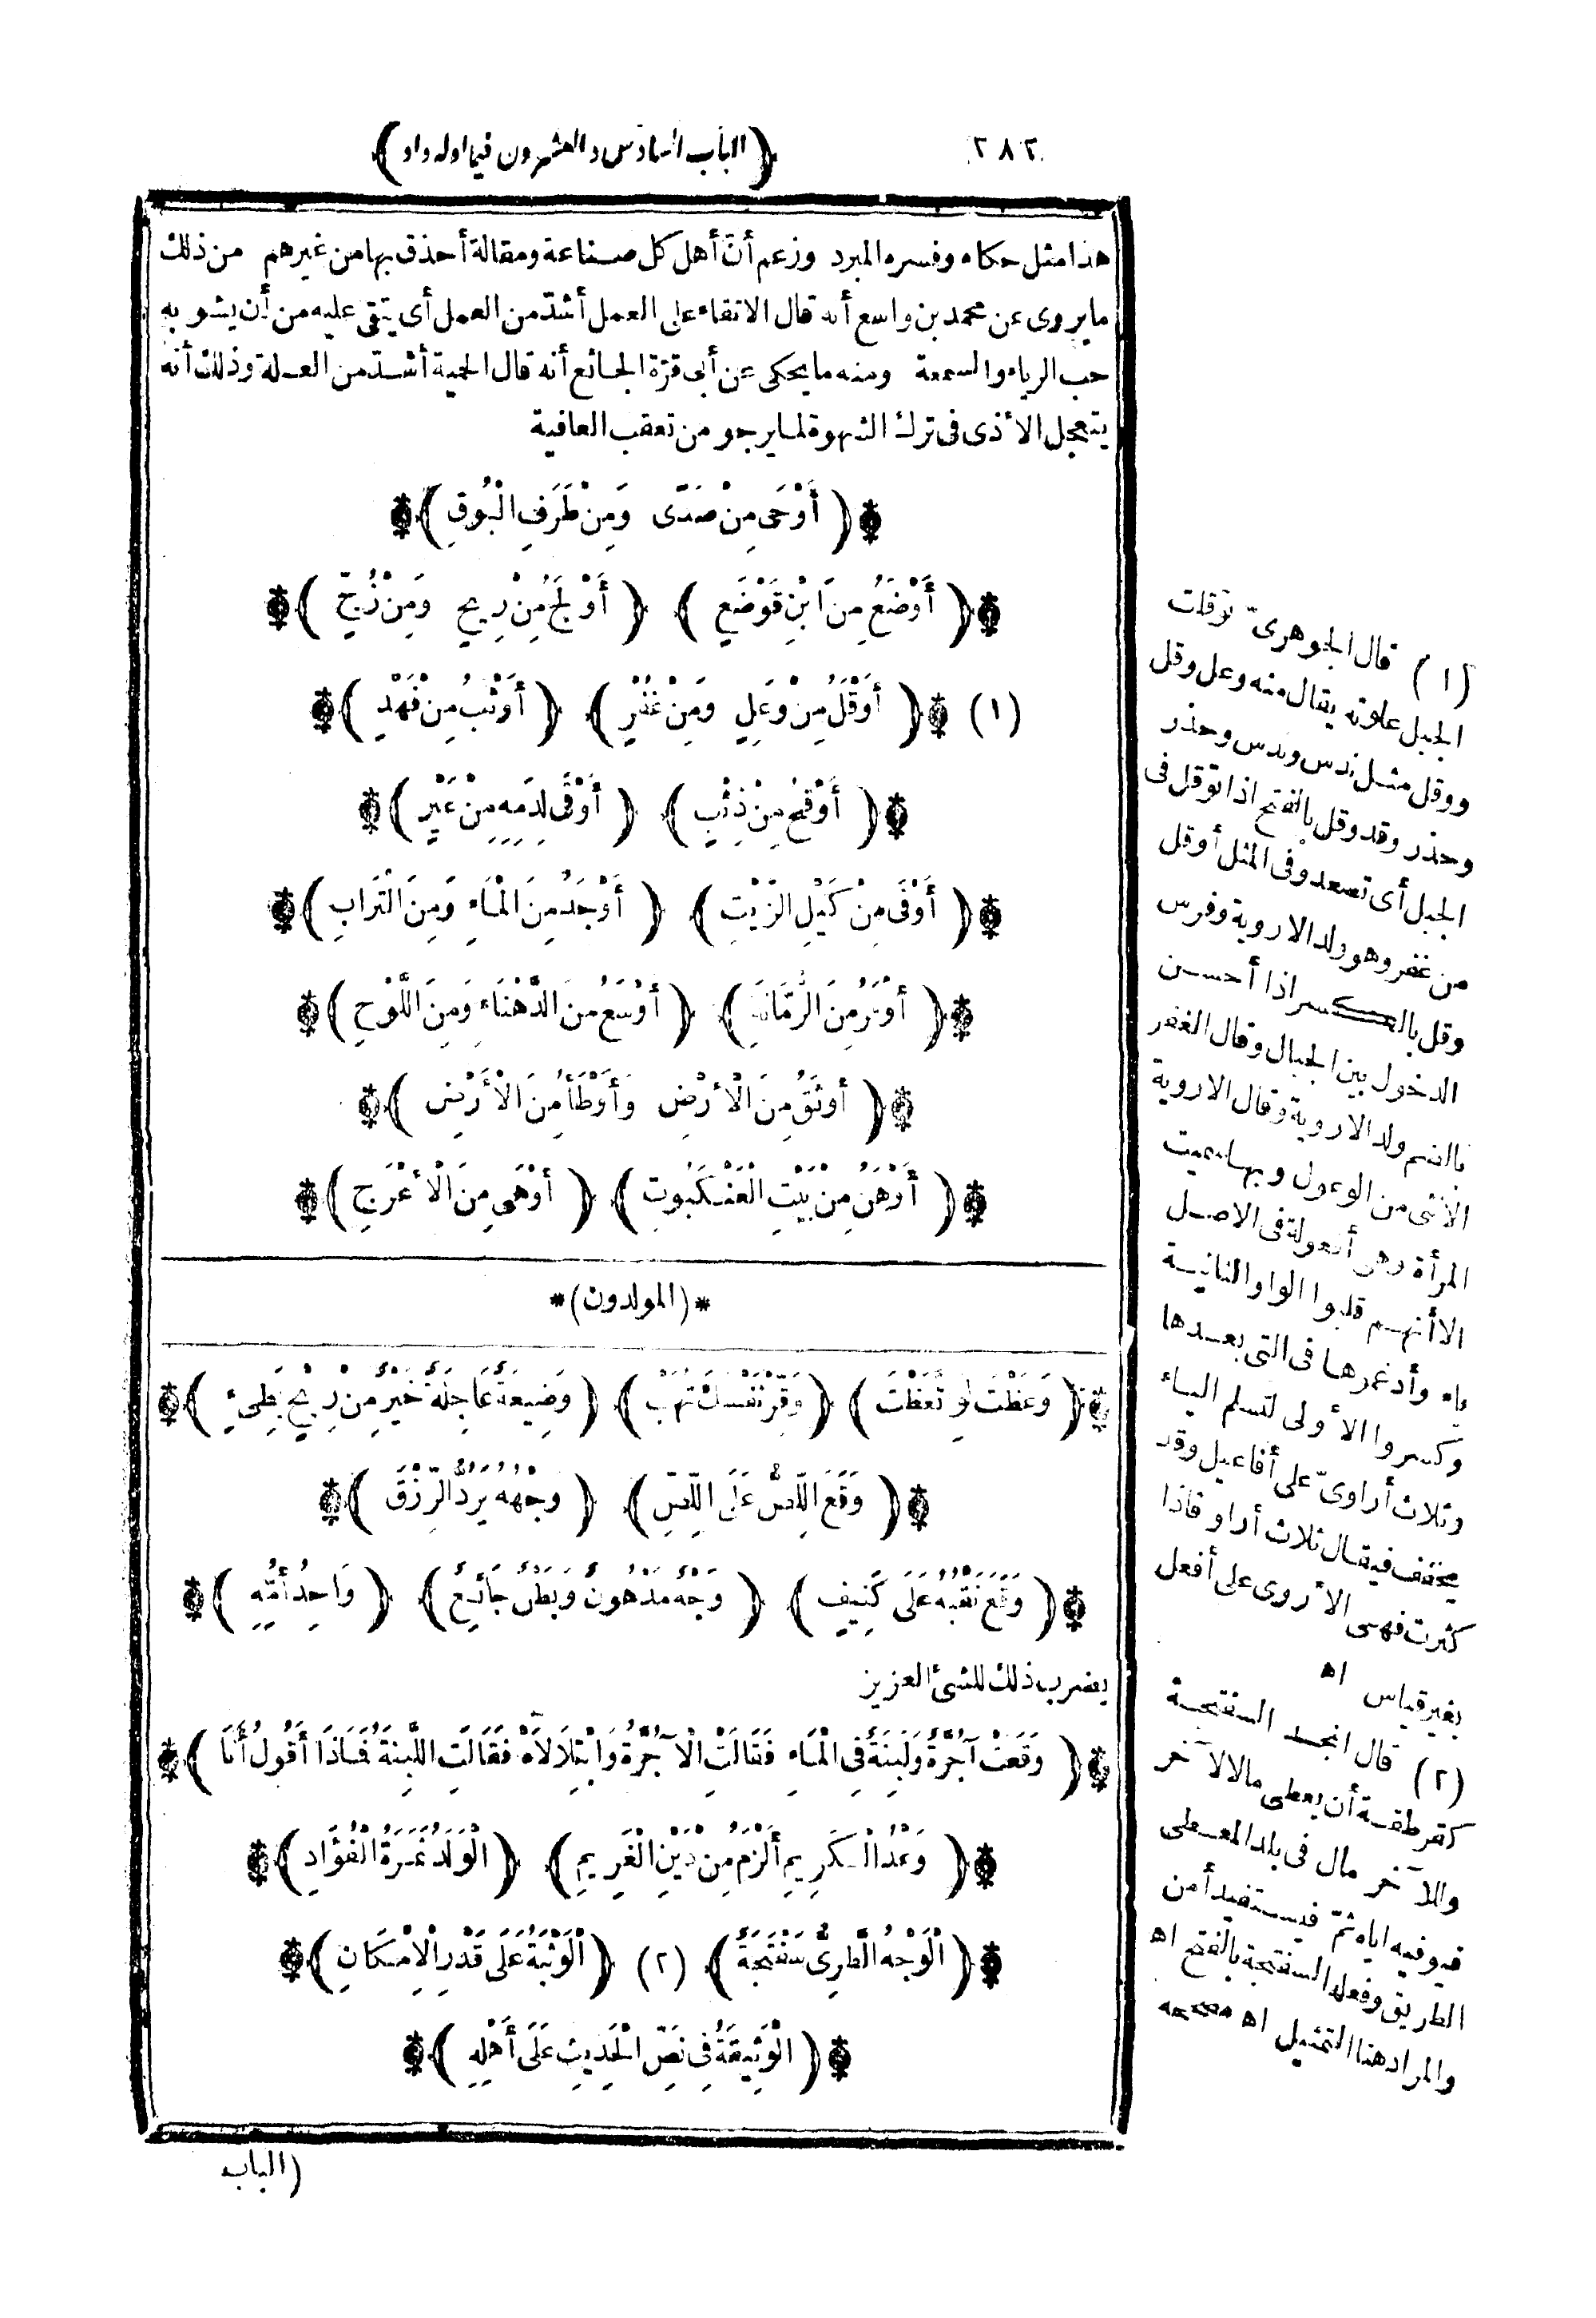 ٢٨٢
﴿الباب السادس والعشرون فيما اوله واو﴾
هذا مثل حكاه وفسره المبرد وزعم أنّ أهل كل صناعة ومقالة أحذق بها من غيرهم من ذلك
ما يروى عن محمد بن واسع أنه قال الاتقاء على العمل أشدّ من العمل أى يتقى عليه من أن يشوبه
حب الرياء والسمعة ومنه ما يحكى عن أبى قرّة الجائع أنه قال الحمية أشدّ من العلة وذلك أنه
يتعجل الأذى فى ترك الشهوة لما يرجو من تعقب العافية
﴿أَوْحَى مِنْ صَدًى وَمِنْ طَرَفِ الْبُوقِ﴾
﴿أَوْضَعُ مِنَ ابْنِ قَوْضَعٍ﴾ ﴿أَوْلَجُ مِنْ رِيحٍ وَمِنْ زُجٍّ﴾
(١) ﴿أَوْقَلُ مِنْ وَعِلٍ وَمِنْ غُفْرٍ﴾ ﴿أَوْثَبُ مِنْ فَهْدٍ﴾
﴿أَوْقَحُ مِنْ ذِئْبٍ﴾ ﴿أَوْقَى لِدَمِهِ مِنْ عَيْرٍ﴾
﴿أَوْفَى مِنْ كَيْلِ الزَّيْتِ﴾ ﴿أَوْجَدُ مِنَ الْمَاءِ وَمِنَ التُّرَابِ﴾
﴿أَوْفَرُ مِنَ الرُّمَّانَةِ﴾ ﴿أَوْسَعُ مِنَ الدَّهْنَاءِ وَمِنَ اللَّوْحِ﴾
﴿أَوْثَقُ مِنَ الْأَرْضِ وَأَوْطَأُ مِنَ الْأَرْضِ﴾
﴿أَوْهَنُ مِنْ بَيْتِ الْعَنْكَبُوتِ﴾ ﴿أَوْهَى مِنَ الْأَعْرَجِ﴾
*(المولدون)*
﴿وَعَظْتَ لَوِ اتَّعَظْتَ﴾ ﴿وَقِّرْ نَفْسَكَ تُهَبْ﴾ ﴿وَضِيعَةٌ عَاجِلَةٌ خَيْرٌ مِنْ رِبْحٍ بَطِىءٍ﴾
﴿وَقَعَ اللِّصُّ عَلَى اللِّصِّ﴾ ﴿وَجْهُهُ يَرُدُّ الرِّزْقَ﴾
﴿وَقَعَ نَقْبُهُ عَلَى كَنِيفٍ﴾ ﴿وَجْهٌ مَدْهُونٌ وَبَطْنٌ جَائِعٌ﴾ ﴿وَاحِدُ أُمِّهِ﴾
يضرب ذلك للشئ العزيز
﴿وَقَعَتْ آجُرَّةٌ وَلَبِنَةٌ فِى الْمَاءِ فَقَالَتِ الْآجُرَّةُ وَابْتِلَالَاهْ فَقَالَتِ اللَّبِنَةُ فَمَاذَا أَقُولُ أَنَا﴾
﴿وَعْدُ الْكَرِيمِ أَلْزَمُ مِنْ دَيْنِ الْغَرِيمِ﴾ ﴿الْوَلَدُ ثَمَرَةُ الْفُؤَادِ﴾
﴿الْوَجْهُ الطَّرِىُّ سَفْتَجَةٌ﴾ (٢) ﴿الْوَثْبَةُ عَلَى قَدْرِ الْإِمْكَانِ﴾
﴿الْوَثِيقَةُ فِى نَصِّ الْحَدِيثِ عَلَى أَهْلِهِ﴾
(١) قال الجوهرىّ توقلت
الجبل علوته يقال منه وعل وقل
ووقل مثل ندس وندس وحذر
وحذر وقد وقل بالفتح اذا توقل فى
الجبل أى تصعد وفى المثل أوقل
من غفر وهو ولد الاروية وفرس
وقل بالكسر اذا أحسن
الدخول بين الجبال وقال الغفر
بالضم ولد الاروية وقال الاروية
الانثى من الوعول وبها سميت
المرأة وهى أفعولة فى الاصل
الا أنهم قلبوا الواو الثانية
ياء وأدغموها فى التى بعدها
وكسروا الأولى لتسلم الياء
وثلاث أراوىّ على أفاعيل وقد
يخفف فيقال ثلاث أراو فاذا
كثرت فهى الأروى على أفعل
بغير قياس اه
(٢) قال المجد السفتجة
كقرطقة أن يعطى مالا لآخر
وللآخر مال فى بلد المعطى
فيوفيه اياه ثمّ فيستفيد أمن
الطريق وفعله السفتجة بالفتح اه
والمراد هنا التمثيل اه مصححه
(الباب